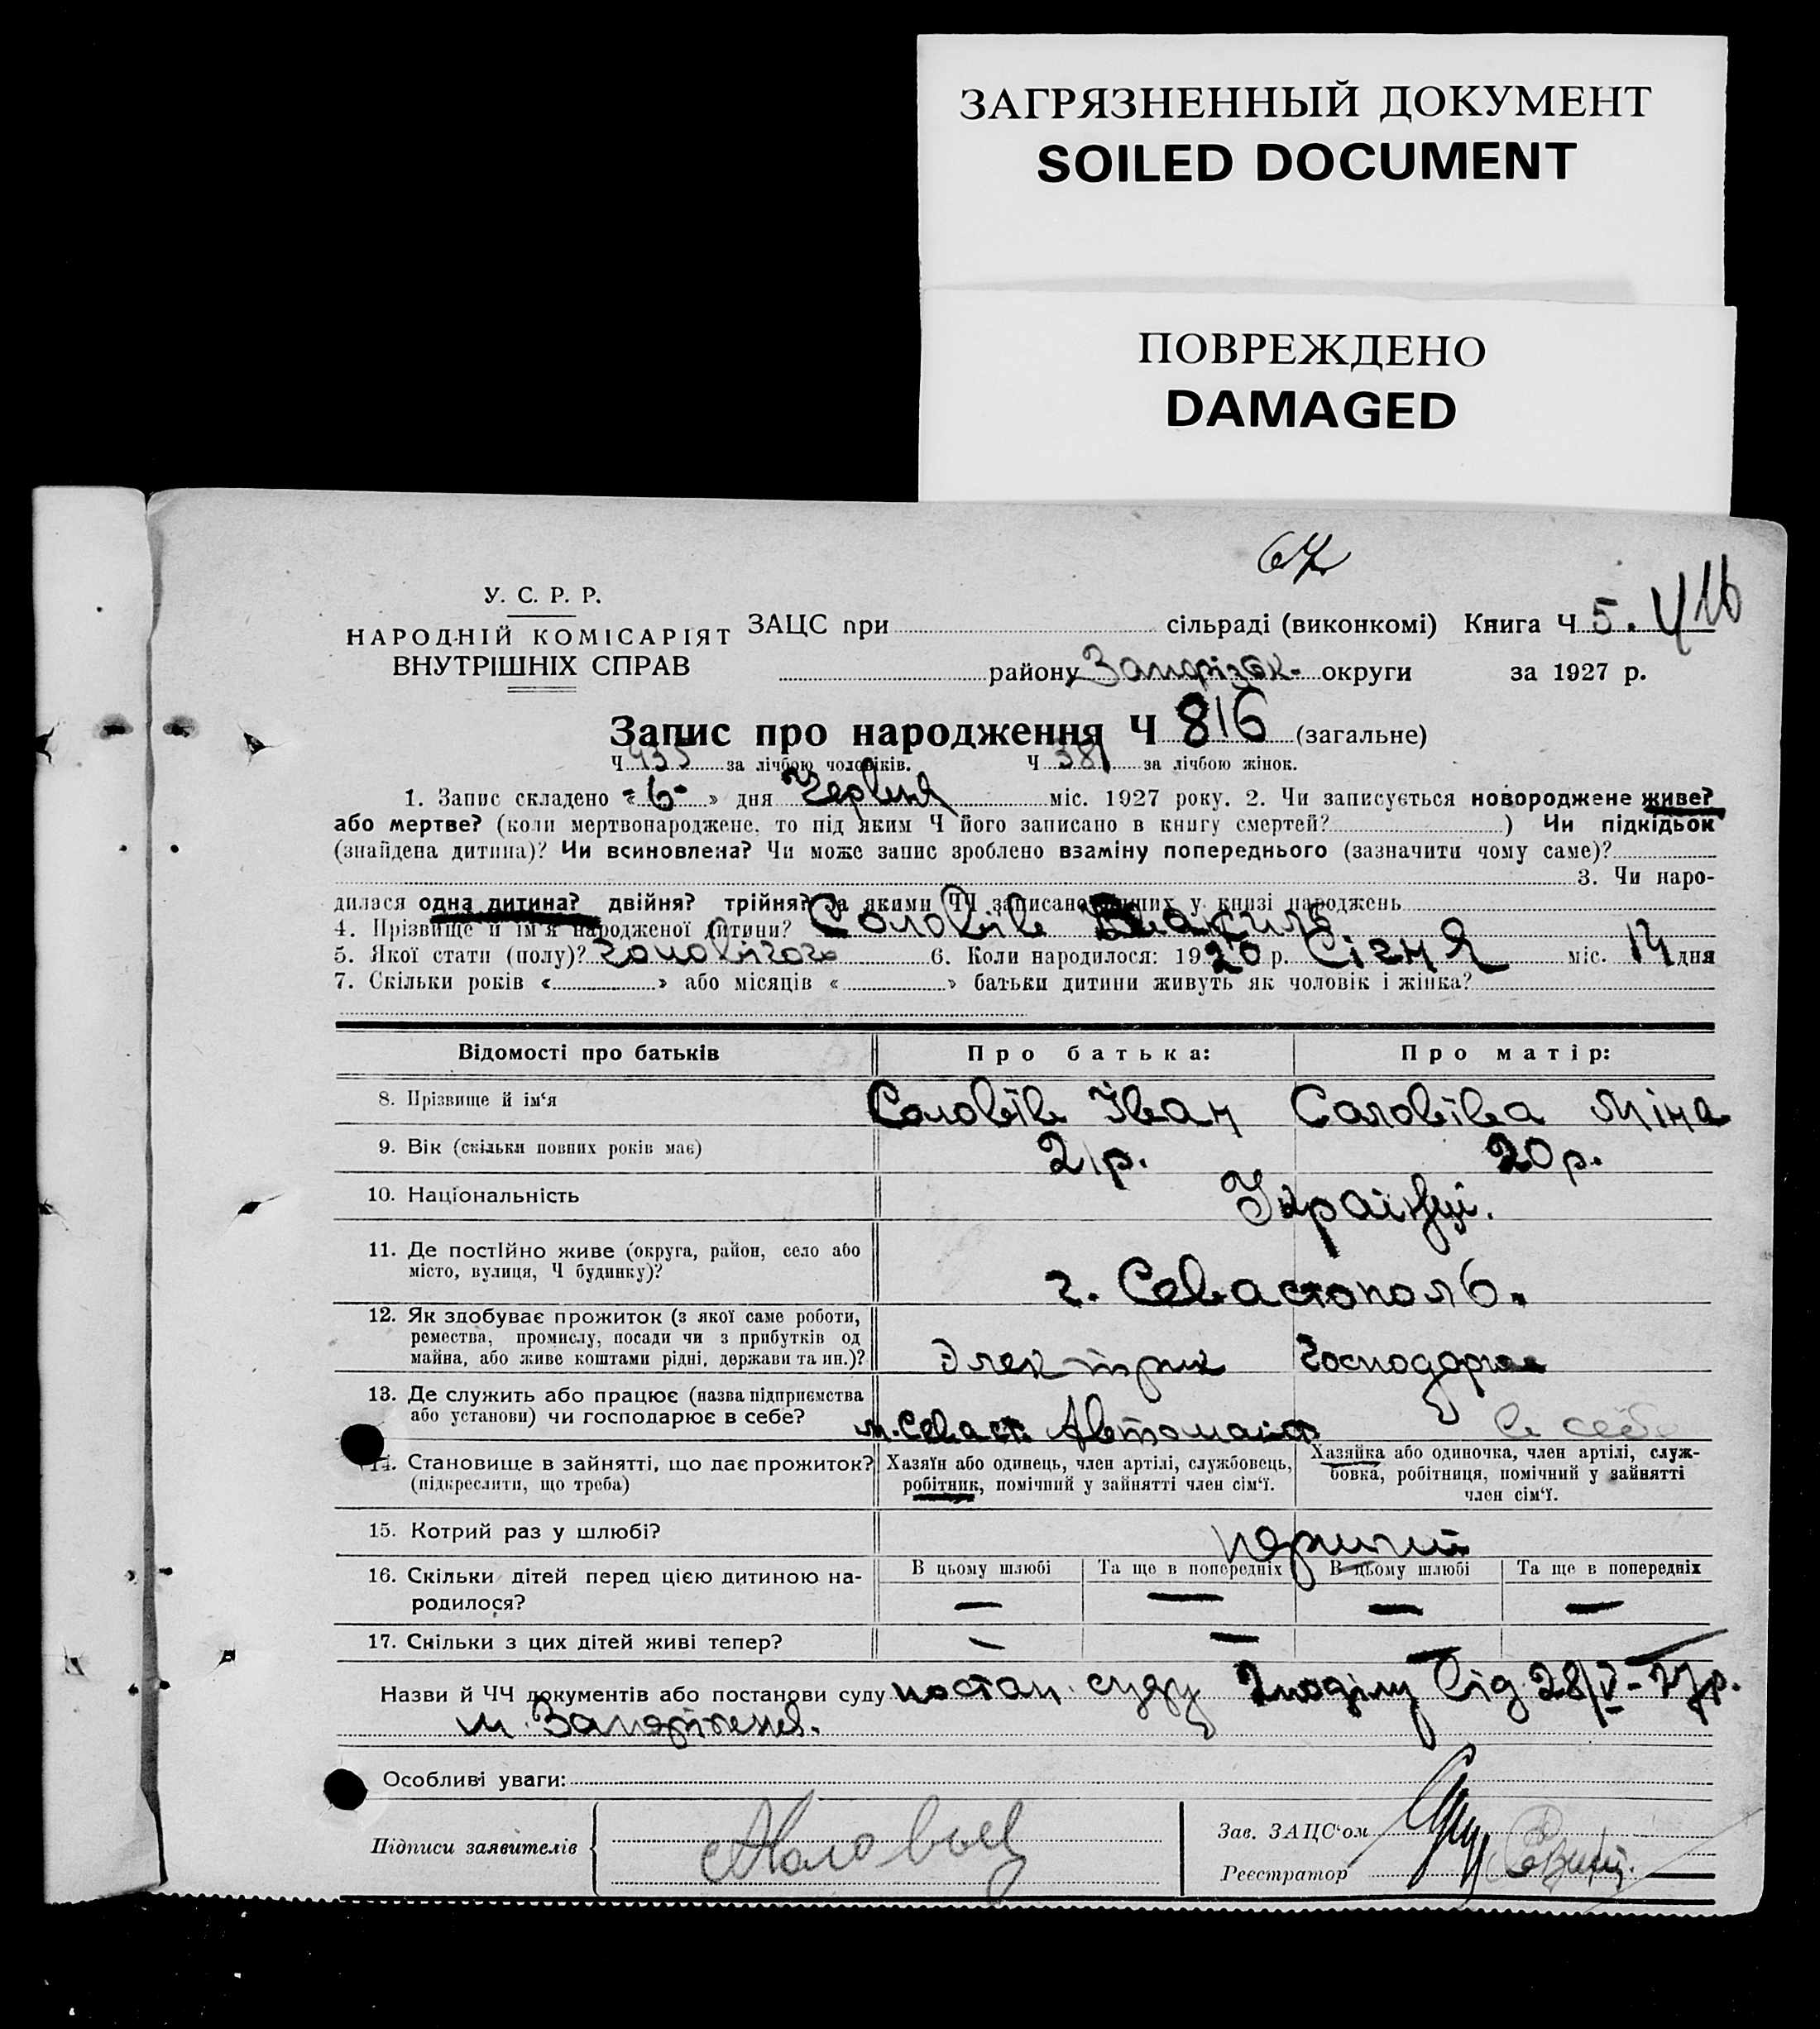 ЗАГРЯЗНЕННЫЙ ДОКУМЕНТ
SOILED DOCUMENT
ПОВРЕЖДЕНО
DAMAGED
67
У. С. Р. Р.
НАРОДНІЙ КОМІСАРІЯТ
ВНУТРІШНІХ СПРАВ
ЗАЦС при сільраді (виконкомі) Книга Ч 5.
району Запоріжж округи за 1927 р.
Запис про народження Ч 816 (загальне)
Ч 435 за лічбою чоловіків. Ч 381 за лічбою жінок.
1. Запис складено «6» дня Червня міс. 1927 року. 2. Чи записується новороджене живе?
або мертве? (коли мертвонароджене, то під яким Ч його записано в книгу смертей? ) Чи підкідьок
(знайдена дитина)? Чи всиновлена? Чи може запис зроблено взаміну попереднього (зазначити чому саме)?
3. Чи наро-
дилася одна дитина? двійня? трійня? за якими ЧЧ записано інших у книзі народжень
4. Прізвище й ім'я народженої дитини? Соловїв
5. Якої стати (полу)? чоловічого 6. Коли народилося: 1920 р. Січня міс. 14 дня
7. Скільки років « » або місяців « » батьки дитини живуть як чоловік і жінка?
Відомості про батьків Про батька: Про матір:
8. Прізвище й ім'я Соловїв Іван Соловїва Міна
9. Вік (скільки повних років має) 21р. 20р.
10. Національність Українці.
11. Де постійно живе (округа, район, село або
місто, вулиця, Ч будинку)? г. Севастополь.
12. Як здобуває прожиток (з якої саме роботи,
ремества, промислу, посади чи з прибутків од
майна, або живе коштами рідні, держави та ин.)? Электрик
13. Де служить або працює (назва підприємства
або установи) чи господарює в себе? м. Севаст. в себе
14. Становище в занятті, що дає прожиток?
(підкреслити, що треба)
Хазяїн або одинець, член артілі, службовець,
робітник, помічний у зайнятті член сім'ї.
Хазяйка або одиночка, член артілі, служ-
бовка, робітниця, помічний у зайнятті
член сім'ї.
15. Котрий раз у шлюбі? перший
16. Скільки дітей перед цією дитиною на-
родилося?
В цьому шлюбі Та ще в попередніх В цьому шлюбі Та ще в попередніх
— — — —
17. Скільки з цих дітей живі тепер? — — —
Назви й ЧЧ документів або постанови суду постан. суду від 28/V-27р.
Особливі уваги:
Підписи заявителів
Зав. ЗАЦС'ом
Реєстратор